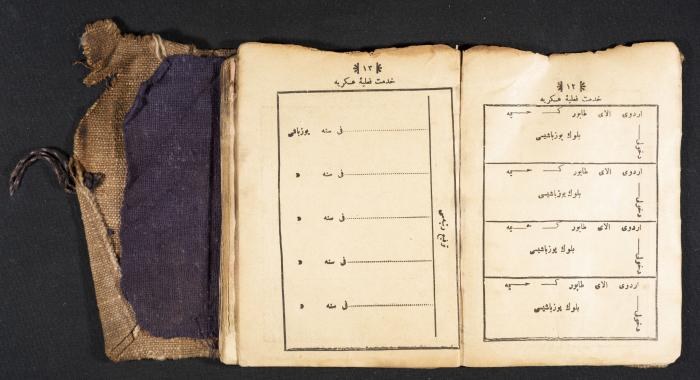 ١٢
خدمت فعلیهٔ عسكریه
اردوی الای طابور
بلوك یوزباشیسی
دخول
اردوی الای طابور
بلوك یوزباشیسی
دخول
اردوی الای طابور
بلوك یوزباشیسی
دخول
اردوی الای طابور
بلوك یوزباشیسی
دخول
١٣
خدمت فعلیهٔ عسكریه
فی سنه یوزباشی
فی سنه »
فی سنه »
فی سنه »
فی سنه »